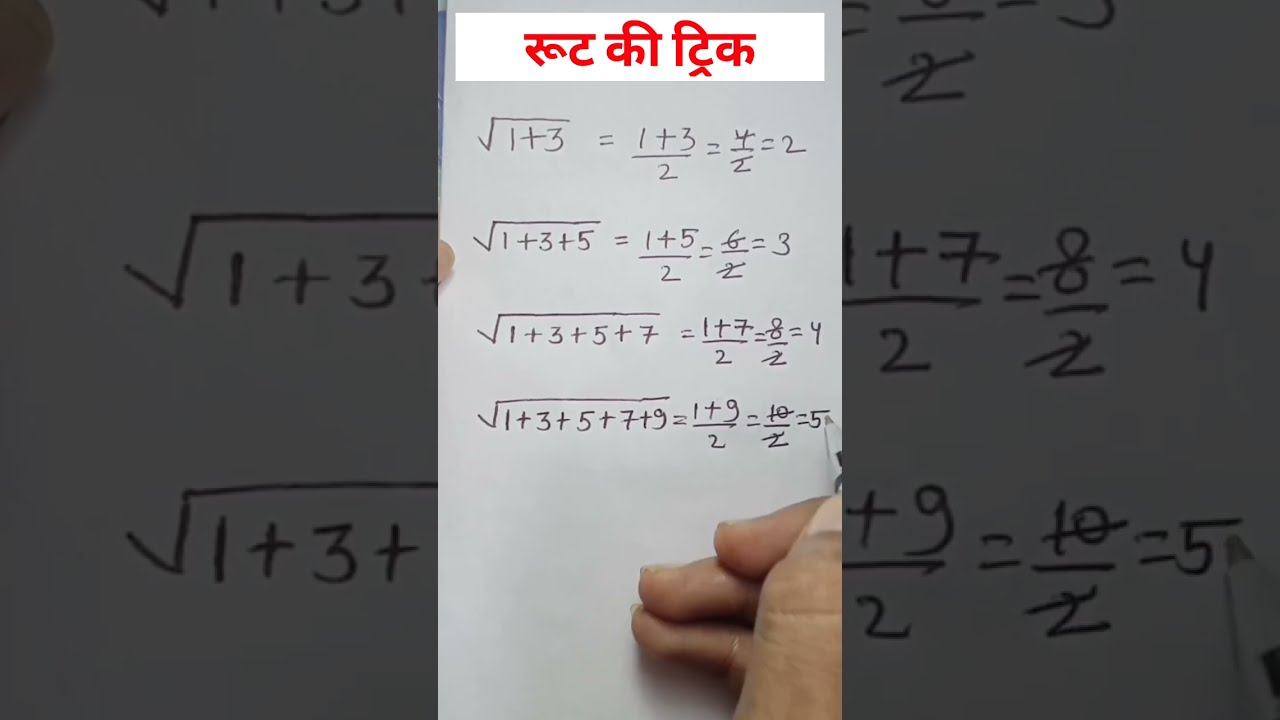 रूट की ट्रिक
√1+3 = 1+3/2 = 4/2 = 2
√1+3+5 = 1+5/2 = 6/2 = 3
√1+3+5+7 = 1+7/2 = 8/2 = 4
√1+3+5+7+9 = 1+9/2 = 10/2 = 5